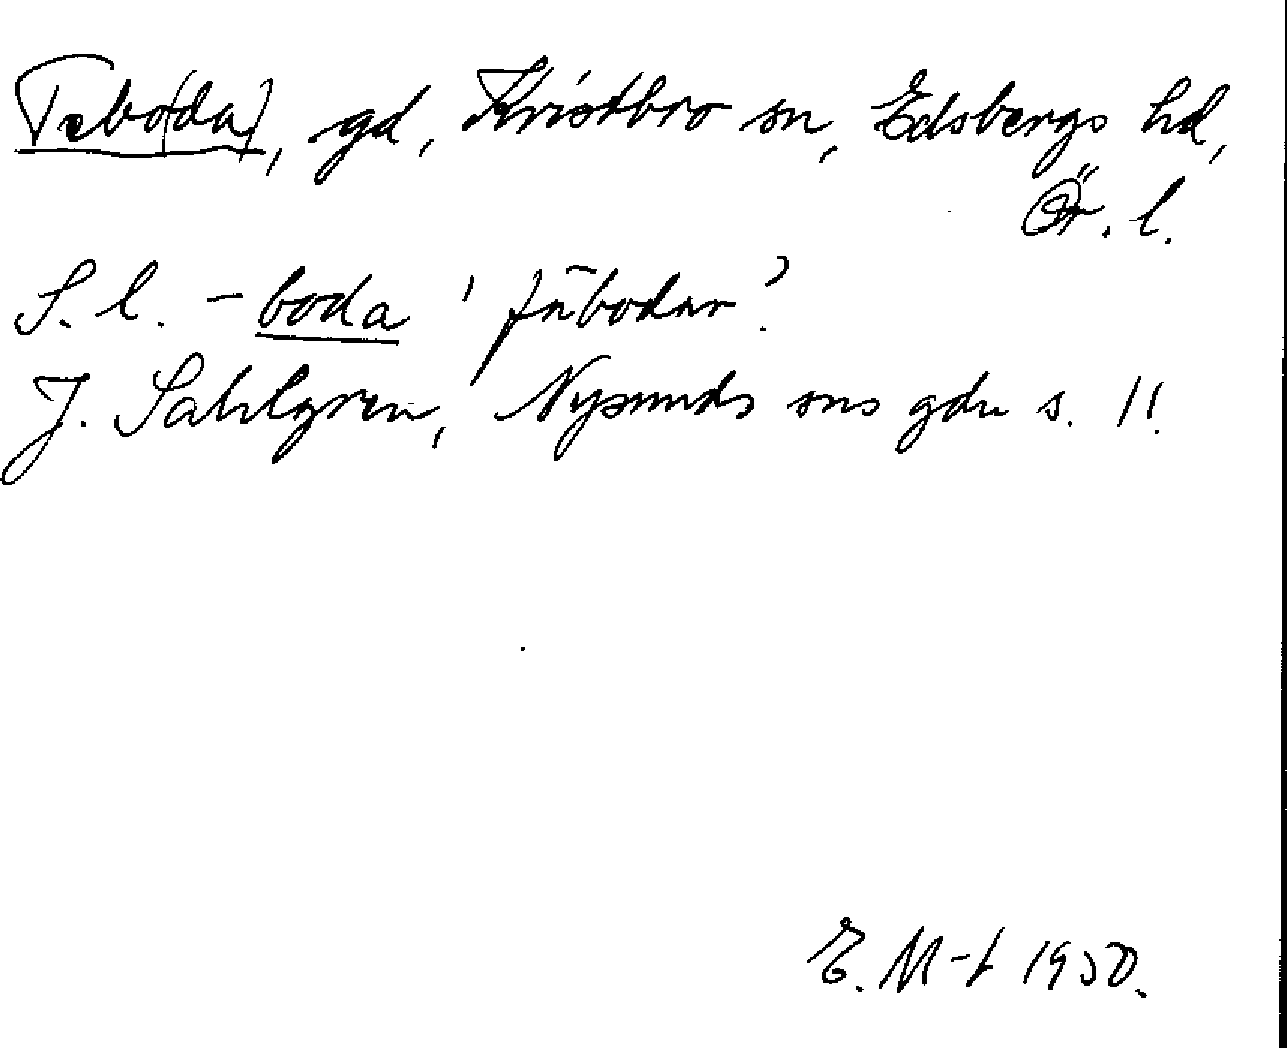 Tebo(da), gd, Kvistbro sn, Edsbergs hd,
Ör. l.
S. l. -boda 'fäbodar'.
J. Sahlgren, Nysunds sns gdn s. 11.
E. M-t 1950.